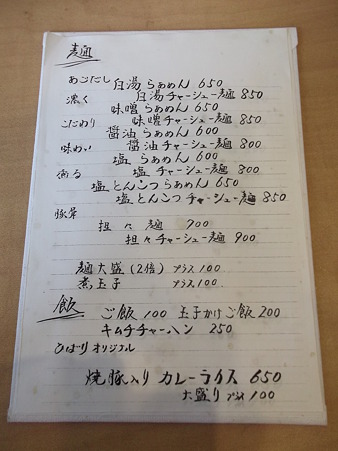 麺
あごだし 白湯らぁめん 650
濃く 白湯チャーシュー麺 850
味噌らぁめん 650
こだわり 味噌チャーシュー麺 850
醤油らぁめん 600
味わい 醤油チャーシュー麺 800
塩らぁめん 600
ある 塩チャーシュー麺 800
塩とんこつらぁめん 650
塩とんこつチャーシュー麺 850
豚骨
担々麺 700
担々チャーシュー麺 900
麺大盛(2倍) プラス100
煮玉子 プラス100
飯
ご飯 100 玉子かけご飯 200
キムチチャーハン 250
ひばりオリジナル
焼豚入りカレーライス 650
大盛りプラス100